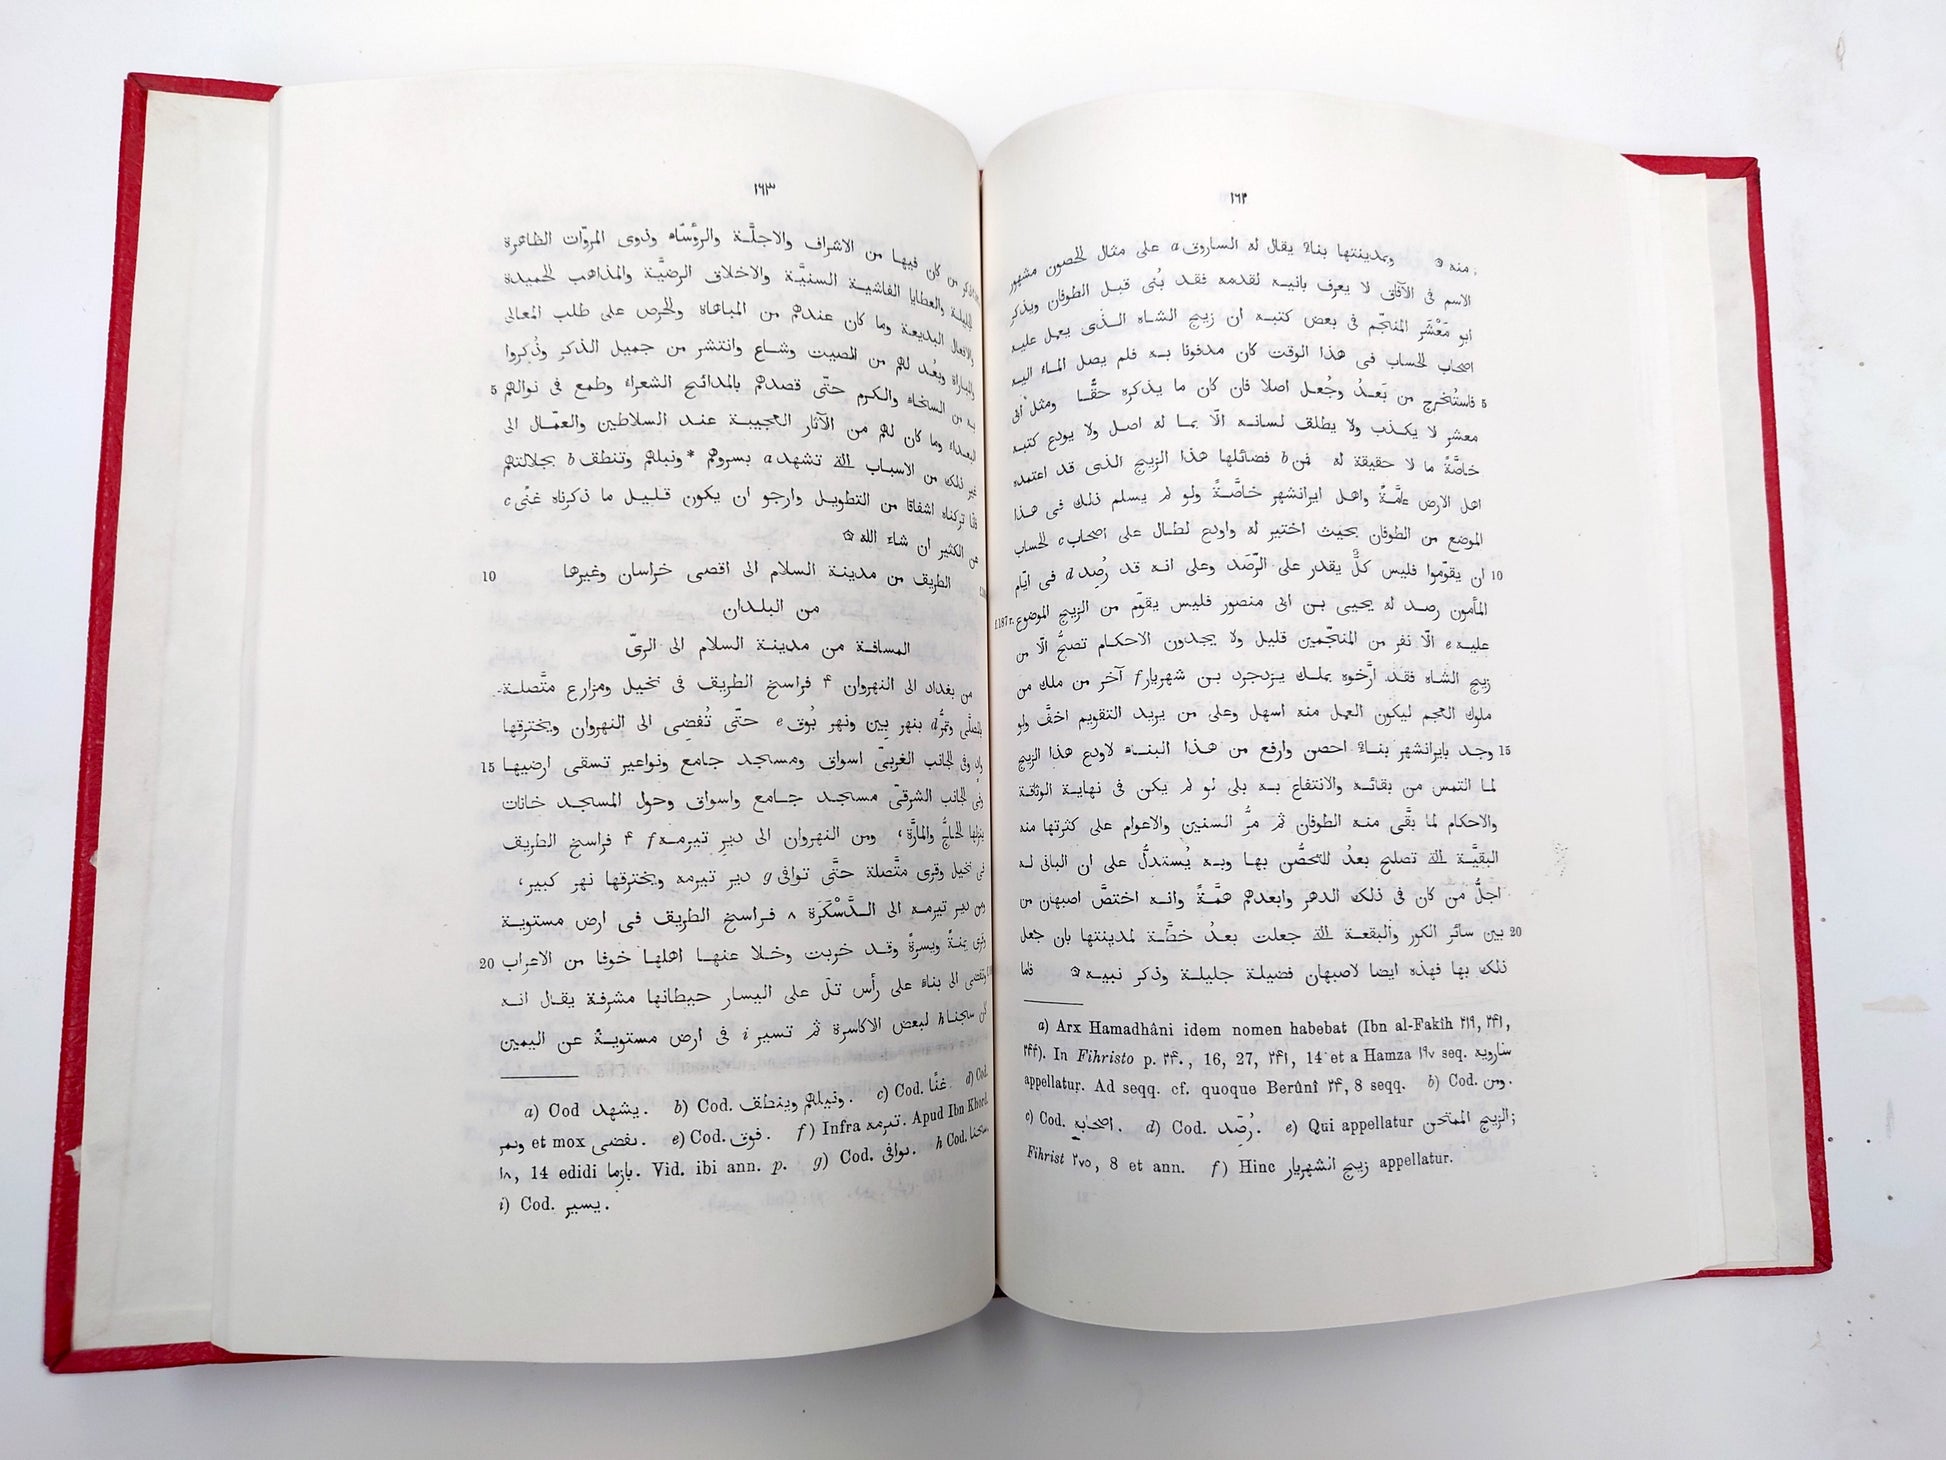 ١٦٢
منه ۞ وبمدينتها بناء يقال له الساروق a على مثال الحصون مشهور
الاسم فى الآفاق لا يعرف بانيه لقدمه فقد بُنى قبل الطوفان ويذكر
ابو مَعْشَر المنجّم فى بعض كتبه ان زيج الشاه الذى يعمل عليه
اصحاب الحساب فى هذا الوقت كان مدفونا به فلم يصل الماء اليه
5 فاستُخرج من بَعدُ وجُعل اصلا فان كان ما يذكره حقًّا ومثل ابى
معشر لا يكذب ولا يطلق لسانه الّا بما له اصل ولا يودع كتبه
خاصّةً ما لا حقيقة له فمن b فضائلها هذا الزيج الذى قد اعتمده
اهل الارض عامّةً واهل ايرانشهر خاصّةً ولو لم يسلم ذلك فى هذا
الموضع من الطوفان بحيث اختير له واودع لطال على اصحاب c الحساب
10 ان يقوّموا فليس كلٌّ يقدر على الرّصَد وعلى انه قد رُصد d فى ايّام
المأمون رصد له يحيى بن ابى منصور فليس يقوّم من الزيج الموضوع f.187 r.
عليه e الّا نفر من المنجّمين قليل ولا يجدون الاحكام تصحّ الّا من
زيج الشاه فقد ارّخوه بملك يزدجرد بن شهريار f آخر من ملك من
ملوك العجم ليكون العمل منه اسهل وعلى من يريد التقويم اخفَّ ولو
15 وجد بايرانشهر بناءً احصن وارفع من هذا البناء لاودع هذا الزيج
لما التمس من بقائه والانتفاع به بلى لو لم يكن فى نهاية الوثاقة
والاحكام لما بقّى منه الطوفان ثم مرُّ السنين والاعوام على كثرتها منه
البقيّة التى تصلح بعدُ للتحصُّن بها وبه يُستدلُّ على ان البانى له
اجلُّ من كان فى ذلك الدهر وابعدهم همَّةً وانه اختصَّ اصبهان من
20 بين سائر الكور والبقعة التى جعلت بعدُ خطّة لمدينتها بان جعل
ذلك بها فهذه ايضا لاصبهان فضيلة جليلة وذكر نبيه ۞ فاما
a) Arx Hamadhâni idem nomen habebat (Ibn al-Fakîh ٢١٩, ٢٤١,
٢٤٤). In Fihristo p. ٢٤٠, 16, 27, ٢٤١, 14 et a Hamza ١٩٧ seq. سارويه
appellatur. Ad seqq. cf. quoque Berûnî ٢٤, 8 seqq. b) Cod. ومن.
c) Cod. اصحابه. d) Cod. رُصِّد. e) Qui appellatur الزيج الممتحن;
Fihrist ٢٧٥, 8 et ann. f) Hinc زيج الشهريار appellatur.
١٦٣
من كان فيها من الاشراف والاجلّة والرؤساء وذوى المروّات الظاهرة
الجليلة والعطايا الفاشية السنيّة والاخلاق الرضيّة والمذاهب الحميدة
والافعال البديعة وما كان عندهم من المباهاة والحرص على طلب المعالى
والمباراة وبعُد لهم من الصيت وشاع وانتشر من جميل الذكر وذُكروا
به من السخاء والكرم حتّى قصدهم بالمدائح الشعراء وطمع فى نوالهم 5
البعداء وما كان لهم من الآثار العجيبة عند السلاطين والعمّال الى
غير ذلك من الاسباب التى تشهد a بسروهم *ونبلهم وتنطق b بجلالتهم
فانّا تركناه اشفاقا من التطويل وارجو ان يكون قليل ما ذكرناه غنًى c
من الكثير ان شاء الله ۞
الطريق من مدينة السلام الى اقصى خراسان وغيرها 10
من البلدان
المسافة من مدينة السلام الى الرىّ
من بغداد الى النهروان ۴ فراسخ الطريق فى نخيل ومزارع متّصلة
بالمصلّى وتمرّ d بنهر بين ونهر بُوق e حتّى تُفضى الى النهروان ويخترقها
وادٍ وفى الجانب الغربىّ اسواق ومسجد جامع ونواعير تسقى ارضيها 15
وفى الجانب الشرقىّ مسجد جامع واسواق وحول المسجد خانات
ينزلها الحاجّ والمارّة، ومن النهروان الى دير تيرمه f ۴ فراسخ الطريق
فى نخيل وقرى متّصلة حتّى توافى g دير تيرمه ويخترقها نهر كبير،
ومن دير تيرمه الى الدَّسْكَرة ٨ فراسخ الطريق فى ارض مستوية
وقرى يمنةً ويسرةً وقد خربت وخلا عنها اهلها خوفا من الاعراب 20
وتفضى الى بناء على رأس تلّ على اليسار حيطانها مشرفة يقال انه
كان سجنا h لبعض الاكاسرة ثم تسير i فى ارض مستوية عن اليمين
a) Cod يشهد. b) Cod. ونيلهم وينطق. c) Cod. غنًا. d) Cod.
ويمر et mox يفضى. e) Cod. فوق. f) Infra تبرمه. Apud Ibn Khord.
١٨, 14 edidi بازما. Vid. ibi ann. p. g) Cod. يوافى. h Cod. سحنا.
i) Cod. يسير.